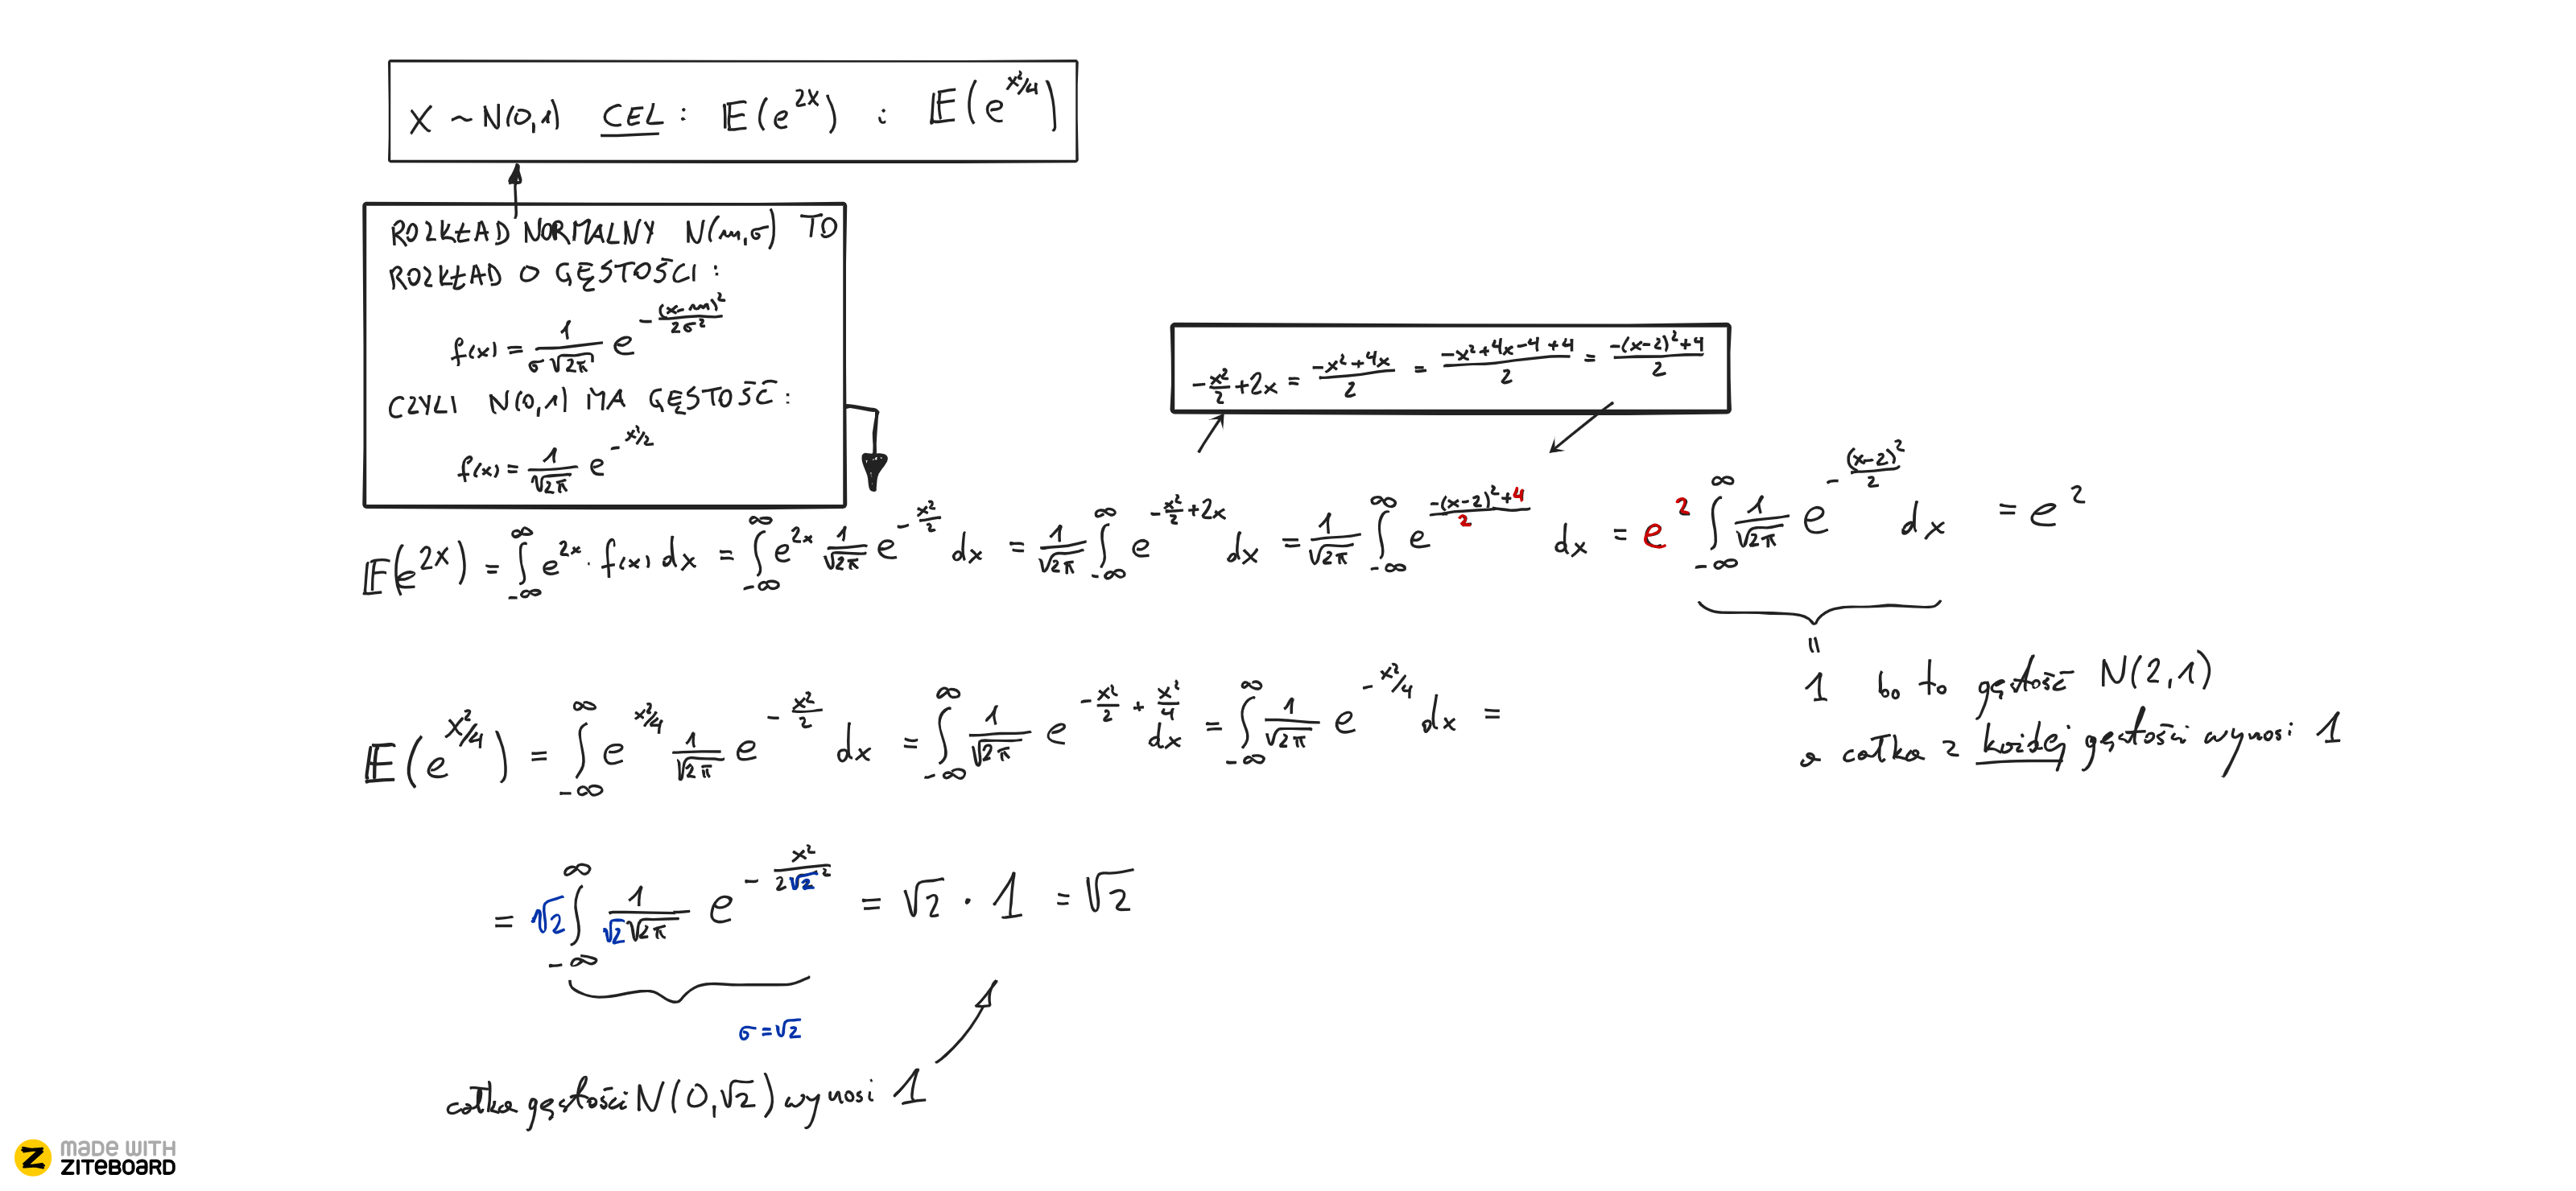 X ~ N(0,1) CEL: 𝔼(e^{2X}) i 𝔼(e^{X²/4})
ROZKŁAD NORMALNY N(m,σ) TO
ROZKŁAD O GĘSTOŚCI:
f(x) = \frac{1}{σ√(2π)} e^{-\frac{(x-m)²}{2σ²}}
CZYLI N(0,1) MA GĘSTOŚĆ:
f(x) = \frac{1}{√(2π)} e^{-x²/2}
-\frac{x²}{2} + 2x = \frac{-x²+4x}{2} = \frac{-x²+4x-4+4}{2} = \frac{-(x-2)²+4}{2}
𝔼(e^{2X}) = ∫_{-∞}^{∞} e^{2x} · f(x) dx = ∫_{-∞}^{∞} e^{2x} \frac{1}{√(2π)} e^{-\frac{x²}{2}} dx = \frac{1}{√(2π)} ∫_{-∞}^{∞} e^{-\frac{x²}{2}+2x} dx = \frac{1}{√(2π)} ∫_{-∞}^{∞} e^{\frac{-(x-2)²+4}{2}} dx = e² ∫_{-∞}^{∞} \frac{1}{√(2π)} e^{-\frac{(x-2)²}{2}} dx = e²
=
1 bo to gęstość N(2,1)
a całka z każdej gęstości wynosi 1
𝔼(e^{X²/4}) = ∫_{-∞}^{∞} e^{x²/4} \frac{1}{√(2π)} e^{-\frac{x²}{2}} dx = ∫_{-∞}^{∞} \frac{1}{√(2π)} e^{-\frac{x²}{2}+\frac{x²}{4}} dx = ∫_{-∞}^{∞} \frac{1}{√(2π)} e^{-x²/4} dx =
= √2 ∫_{-∞}^{∞} \frac{1}{√2 √(2π)} e^{-\frac{x²}{2√2²}} = √2 · 1 = √2
σ = √2
całka gęstości N(0,√2) wynosi 1
MADE WITH
ZITEBOARD